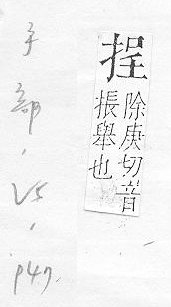 挰
除庚切音
掁舉也
手部,
p47.